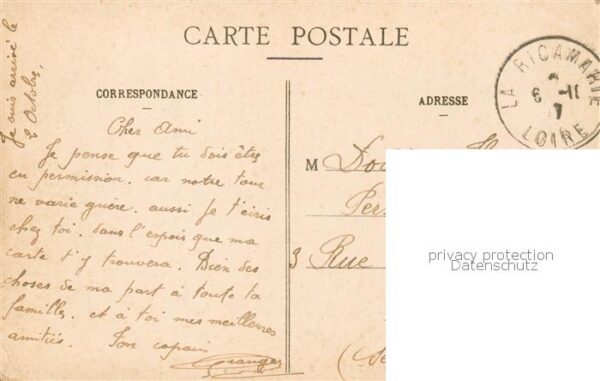 CARTE POSTALE
Je suis arrivé le
2 Octobre.
CORRESPONDANCE
ADRESSE
LA RICAMARIE
6 -11
7
LOIRE
Cher Ami
Je pense que tu dois être
en permission. car notre tour
ne varie guère. aussi je t'écris
chez toi. dans l'espoir que ma
carte t'y trouvera. Bien des
choses de ma part à toute ta
famille. et à toi mes meilleures
amitiés. Ton copain
Granger
M
3 Rue
privacy protection
Datenschutz